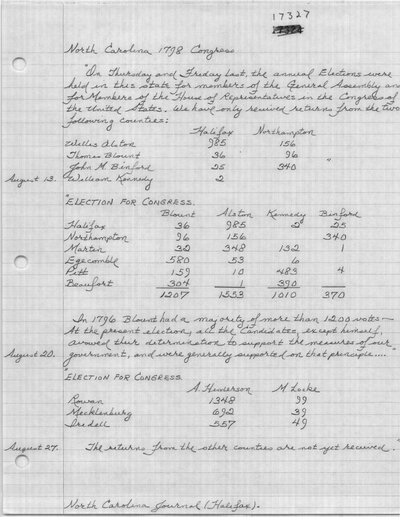 17327
North Carolina 1798 Congress
"On Thursday and Friday last, the annual Elections were
held in this state for members of the General Assembly and
for Members of the House of Representatives in the Congress of
the United States. We have only received returns from the two
following counties:
Halifax Northampton
Willis Alston 985 156
Thomas Blount 36 96
John M. Binford 25 340 "
August 13. William Kennedy 2
"ELECTION FOR CONGRESS.
Blount Alston Kennedy Binford
Halifax 36 985 2 25
Northampton 96 156 340
Martin 32 348 132 1
Edgecombe 580 53 6
Pitt 159 10 483 4
Beaufort 304 1 390
1207 1553 1010 370
In 1796 Blount had a majority of more than 1200 votes—
At the present election, all the Candidates, except himself,
avowed their determination to support the measures of our
August 20. government, and were generally supported on that principle...."
"ELECTION FOR CONGRESS
A. Henderson M. Locke
Rowan 1348 99
Mecklenburg 692 39
Iredell 557 49
August 27. The returns from the other counties are not yet received."
North Carolina Journal (Halifax).